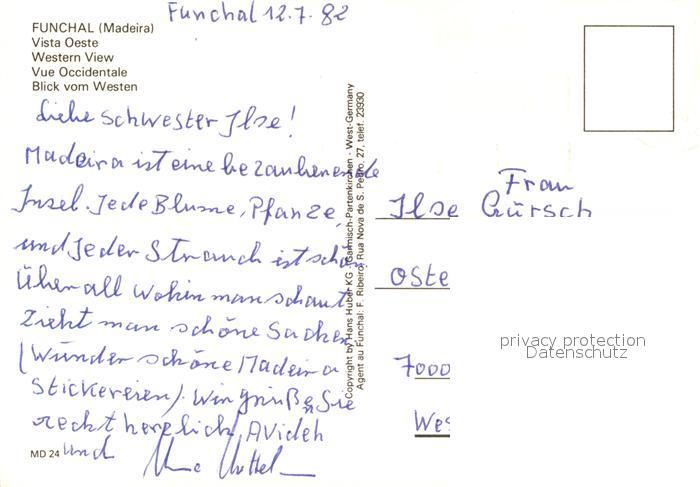 Funchal 12.7.82
FUNCHAL (Madeira)
Vista Oeste
Western View
Vue Occidentale
Blick vom Westen
Liebe Schwester Ilse!
Madeira ist eine bezaubernende
Insel. Jede Blume, Pfanze
und Jeder Strauch ist schön
Überall wohin man schaut
zieht man schöne Sachen
(Wunder schöne Madeira
Stickereien). Wir grüßen Sie
recht herzlich, Avideh
und
MD 24
Copyright by Hans Huber KG · Garmisch-Partenkirchen · West-Germany
Agent au Funchal: F. Ribeiro, Rua Nova de S. Pedro, 27, telef. 23930
Frau
Ilse Gürsch
Oste
7000
Wes
privacy protection
Datenschutz